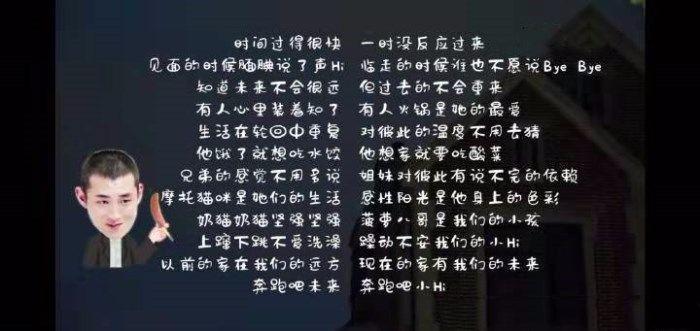 时间过得很快 一时没反应过来
见面的时候腼腆说了声Hi 临走的时候谁也不愿说Bye Bye
知道未来不会很远 但过去的不会重来
有人心里装着知了 有人火锅是她的最爱
生活在轮回中重复 对彼此的温度不用去猜
他饿了就想吃水饺 他想家就要吃酸菜
兄弟的感觉不用多说 姐妹对彼此有说不完的依赖
摩托猫咪是她们的生活 感性阳光是他身上的色彩
奶猫奶猫坚强坚强 菠萝八哥是我们的小孩
上蹿下跳不爱洗澡 躁动不安我们的小Hi
以前的家在我们的远方 现在的家有我们的未来
奔跑吧未来 奔跑吧小Hi